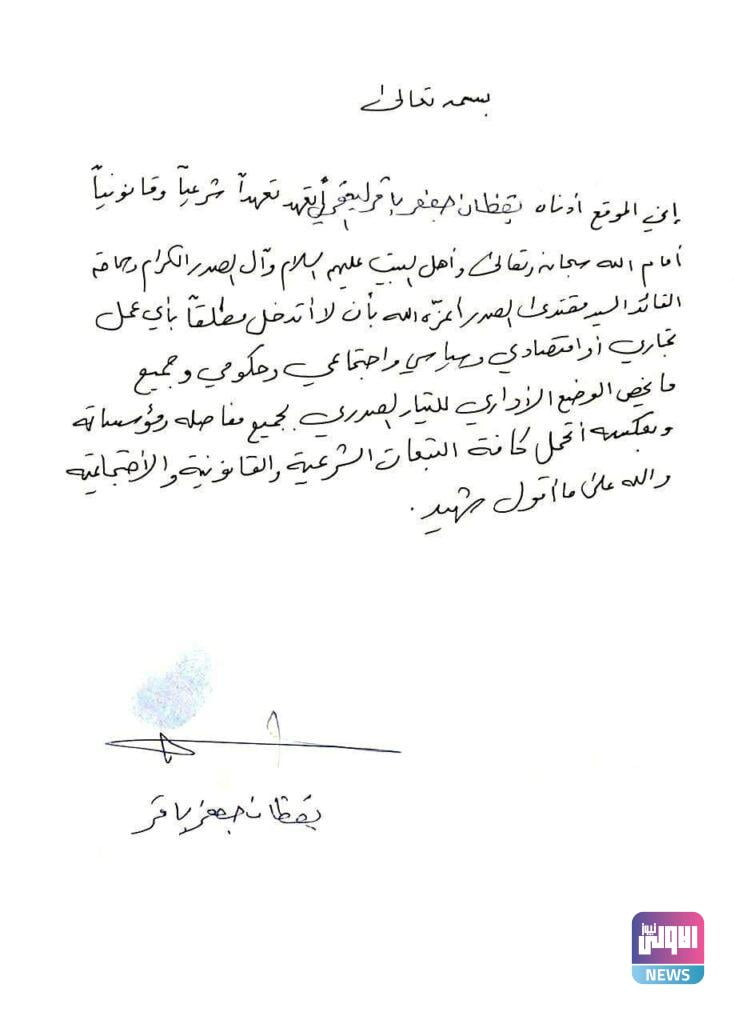 بسمه تعالى
إني الموقع أدناه يقظان جعفر باقر أتعهد تعهداً شرعياً وقانونياً
أمام الله سبحانه وتعالى وأهل البيت عليهم السلام وآل الصدر الكرام وسماحة
القائد السيد مقتدى الصدر أعزه الله بأن لا أتدخل مطلقاً بأي عمل
تجاري أو اقتصادي وسياسي واجتماعي وحكومي وجميع
ما يخص الوضع الأداري للتيار الصدري بجميع مفاصله ومؤسساته
وبعكسه أتحمل كافة التبعات الشرعية والقانونية والأجتماعية
والله على ما أقول شهيد .
يقظان جعفر باقر
الاولى نيوز
NEWS